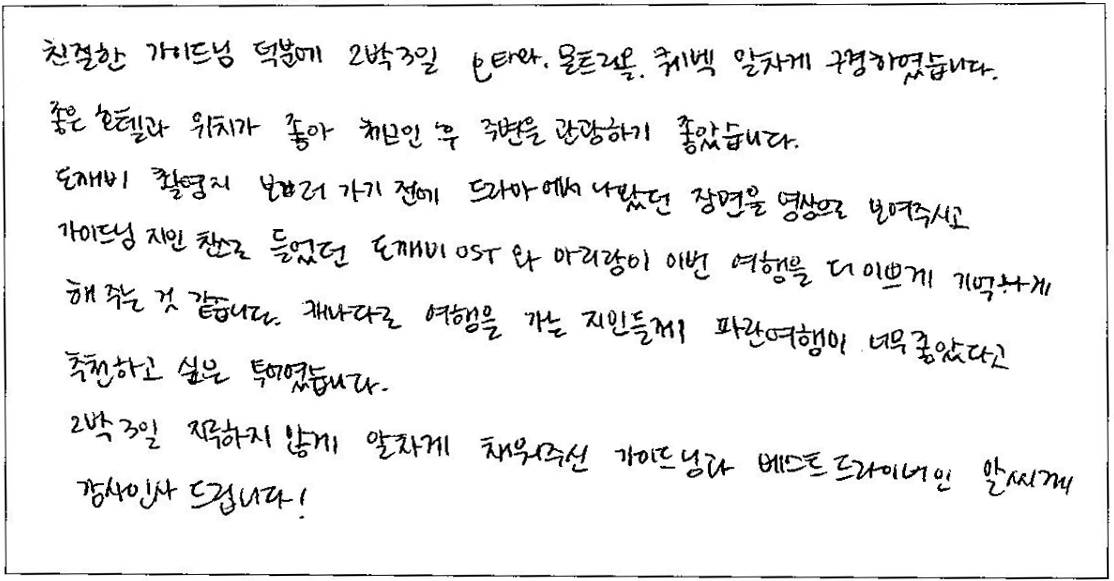 친절한 가이드님 덕분에 2박3일 오타와, 몬트리올, 퀘벡 알차게 구경하였습니다.
좋은 호텔과 위치가 좋아 체크인 후 주변을 관광하기 좋았습니다.
도깨비 촬영지 보러 가기 전에 드라마에서 나왔던 장면을 영상으로 보여주시고
가이드님 지인 찬스로 들었던 도깨비 OST 와 아리랑이 이번 여행을 더 이쁘게 기억하게
해 주는 것 같습니다. 캐나다로 여행을 가는 지인들께 파란여행이 너무 좋았다고
추천하고 싶은 투어였습니다.
2박3일 지루하지 않게 알차게 채워주신 가이드님과 베스트 드라이버인 알씨께
감사인사 드립니다!